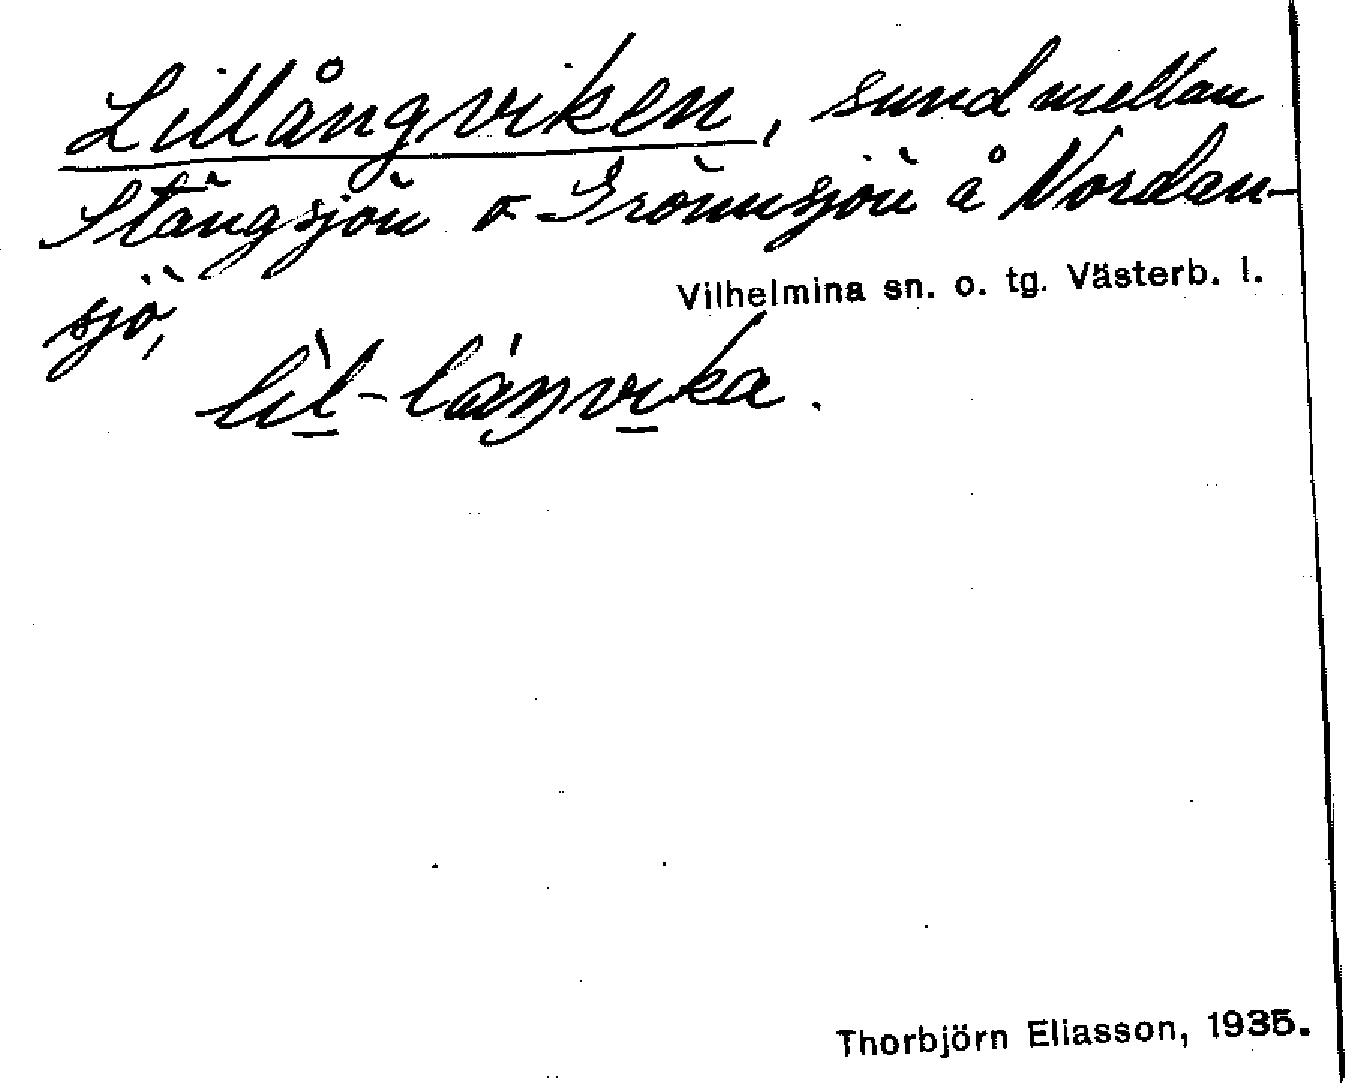 Lillångviken, sund mellan
Stängsjön o. Grönnsjön å Nordan-
sjö,
Vilhelmina sn. o. tg. Västerb. l.
lìl-láŋvika.
Thorbjörn Eliasson, 1935.